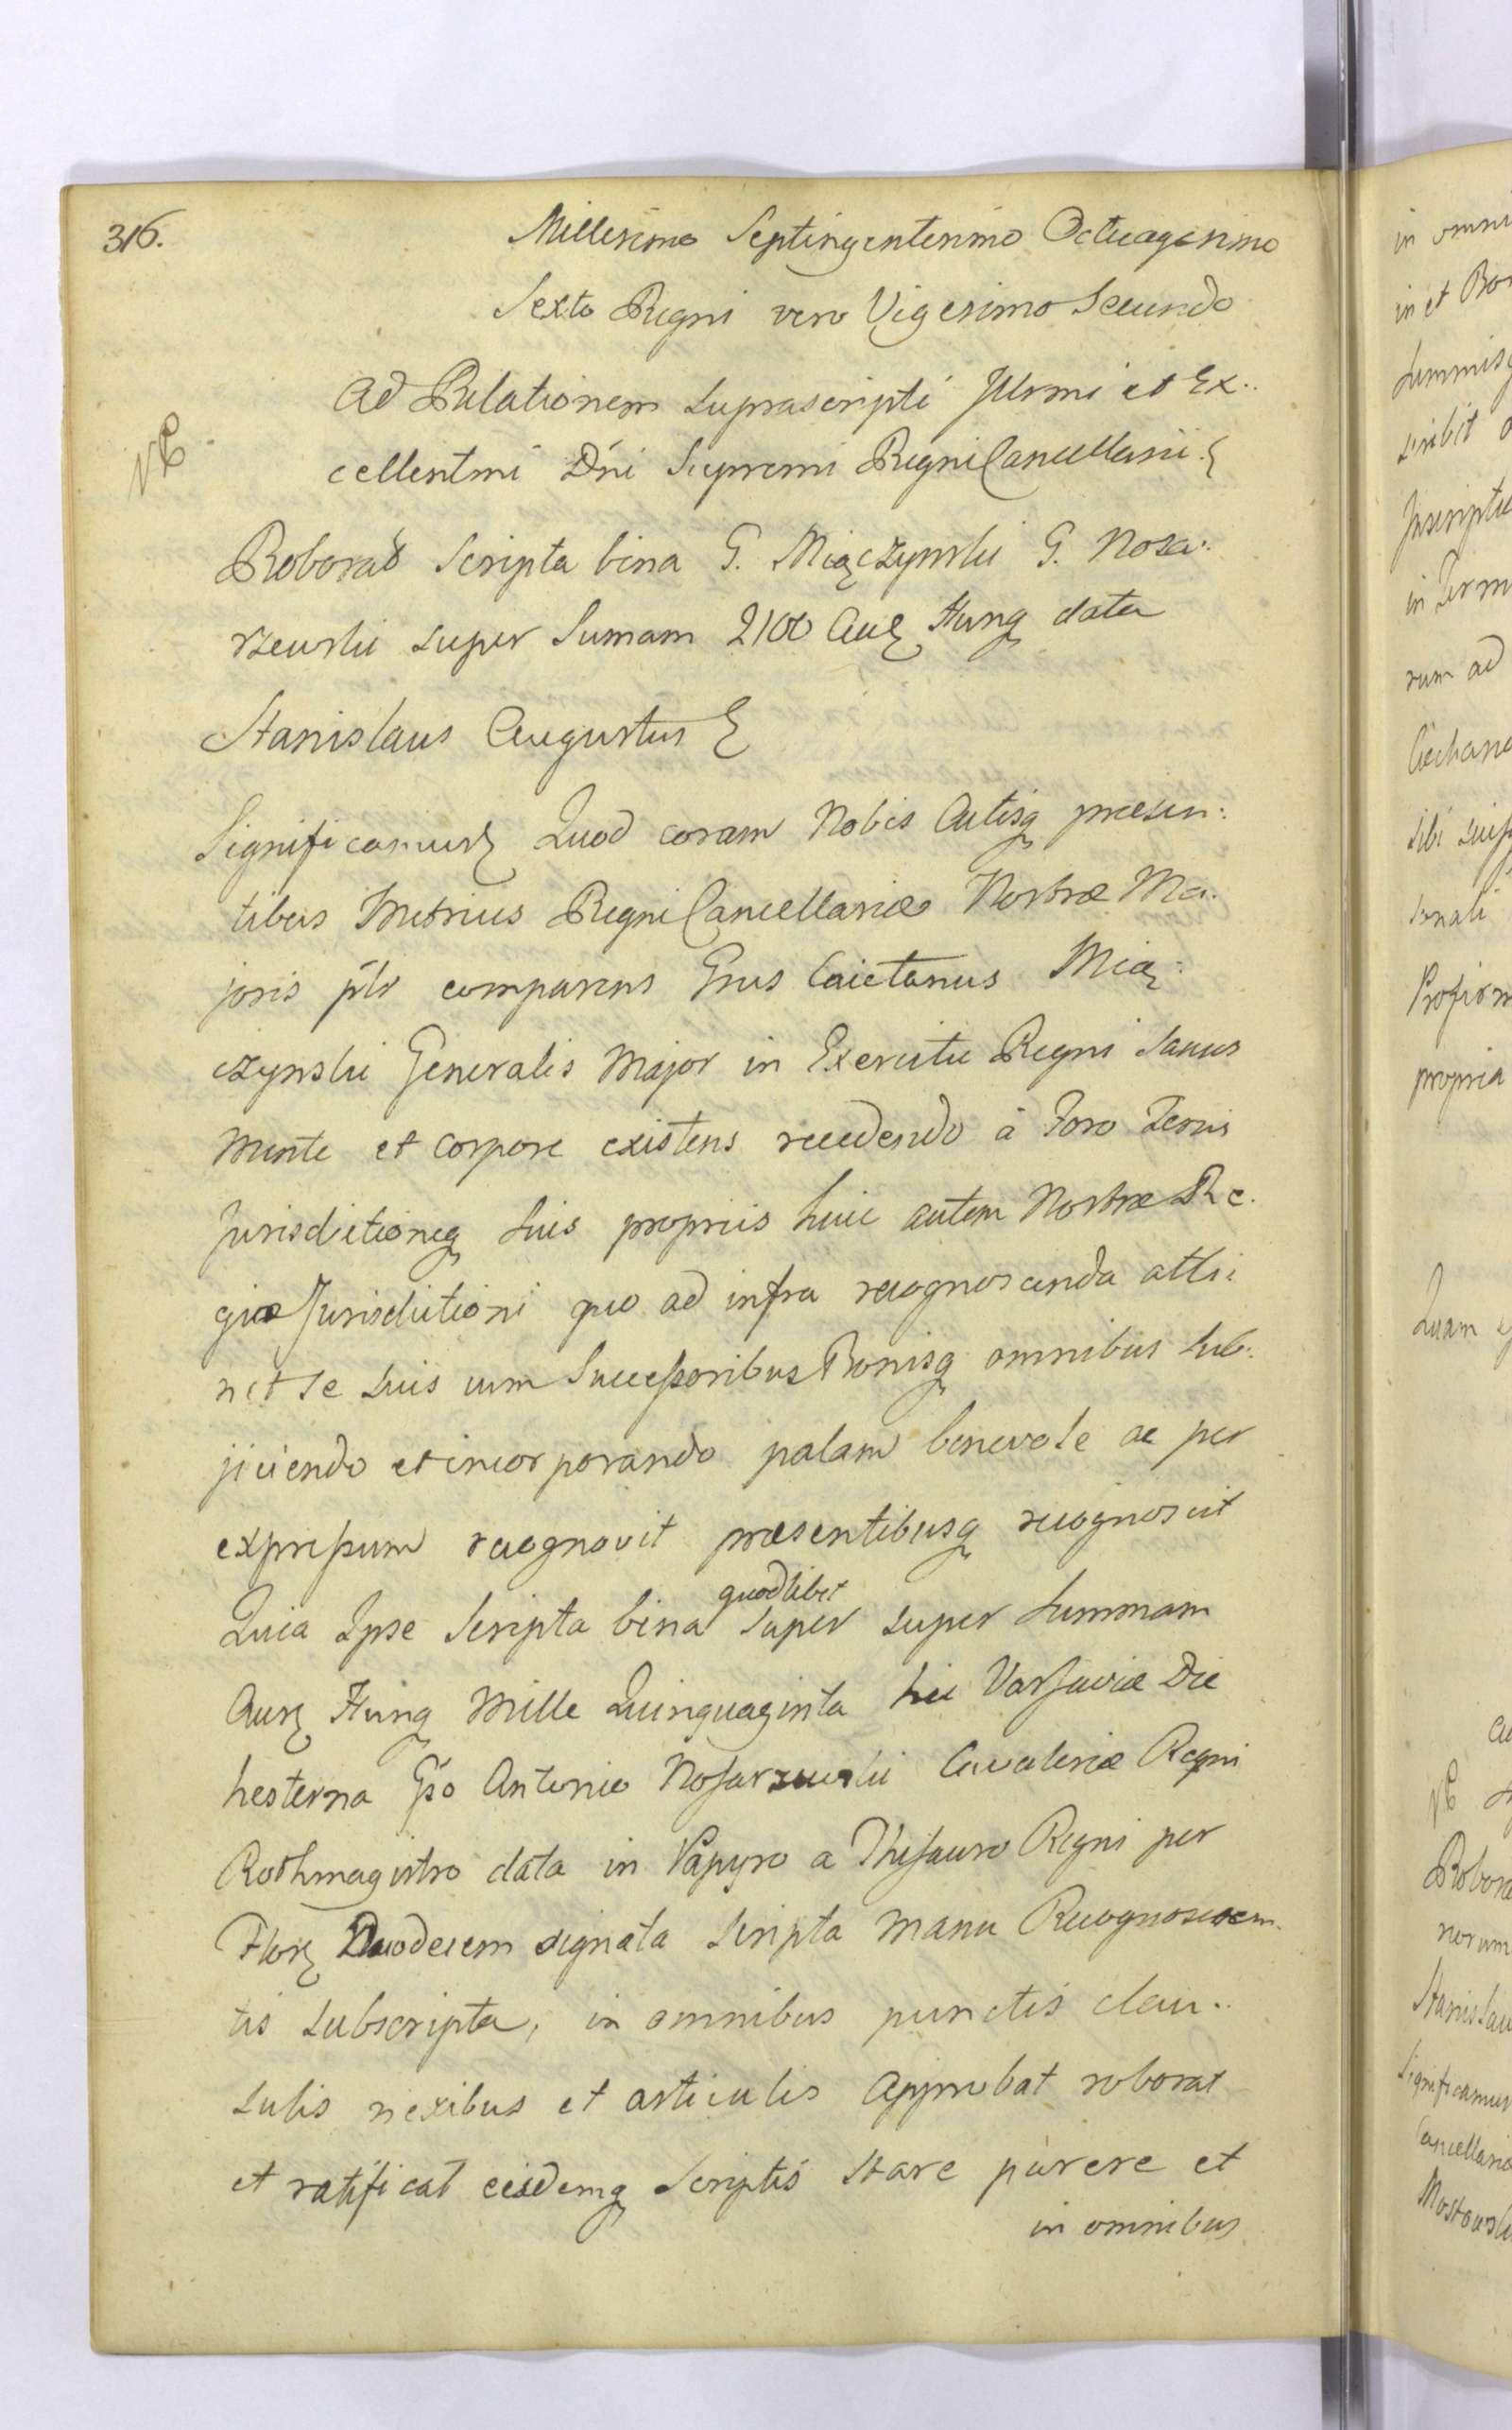 316.
Millesimo Septingentesimo Octuagesimo
Sexto Regni vero Vigesimo Secundo
Ad Relationem suprascripti Illsmi et Ex..
cellentmi Dńi Supremi Regni Cancellarii.
Roborat Scripta bina G. Miączynski G. Nosa:
rzewski super Sumam 2100 Auꝝ Hung data
Stanislaus Augustus
Significamus Quod coram Nobis Actisq praesen:
tibus Metrices Regni Cancellariae Nostrae Ma.
joris plr comparens Gnus Caietanus Mią:
czynski Generalis Major in Exercitu Regni Sanus
mente et corpore existens recedendo à Foro Terris
Jurisdictioneq suis propriis huic autem Nostrae Re.
giae Jurisdictioni quo ad infra recognoscenda atti:
net se suis cum Successoribus Bonisq omnibus sub:
jiciendo et incorporando palam benevole ac per
expressum recognovit praesentibusq recognoscit
Quia Ipse Scripta bina quodlibet super super Summam
Aurꝝ Hung Mille Quinquaginta hic Varsaviae Die
hesterna Gso Antonio Nosarzewski Cavaleriae Regni
Rothmagistro data in Papyro a Thesauro Regni per
Florꝝ Duodecem signata Scripta manu Recognoscen.
tis subscripta, in omnibus punctis clau..
sulis nexibus et articulis approbat roborat
et ratificat eisdemq Scriptis stare parere et
in omnibus
in omni
in et Bon
summisq
scribit
Inscriptu
in Term
rum ad
Ciechano
sibi suis
sonali
propria
Quam
Robora
norum
Stanislau
Significamus
Cancellaria
Mostowski